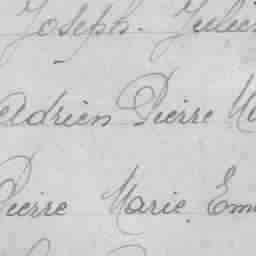 Joseph. Julien
Adrien Pierre
Pierre Marie Em